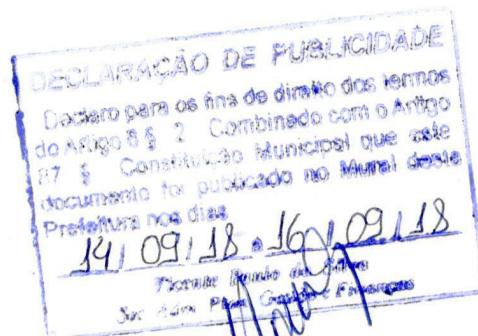 DECLARAÇÃO DE PUBLICIDADE
Declaro para os fins de direito dos termos
do Artigo 8 § 2 Combinado com o Artigo
87 § Constituição Municipal que este
documento foi publicado no Mural deste
Prefeitura nos dias
14/09/18 a 16/09/18
da Silva
Sec Adm Plan Gestão e Finanças